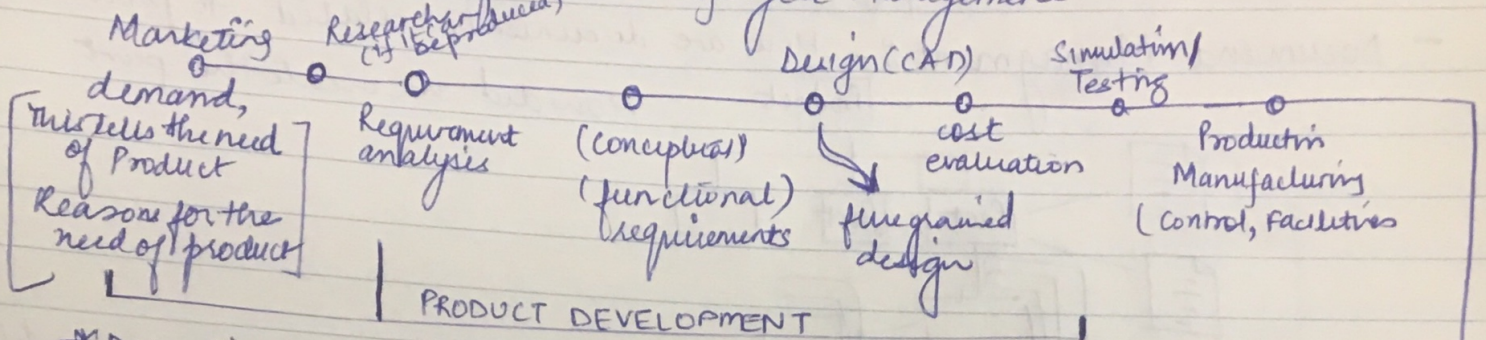 Marketing
demand,
This tells the need
of Product
Reasons for the
need of product
Research
(if it can be produced)
Requirement
analysis
(conceptual)
(functional)
requirements
Design (CAD)
fine grained
design
cost
evaluation
Simulation/
Testing
Production
Manufacturing
(control, facilities
PRODUCT DEVELOPMENT